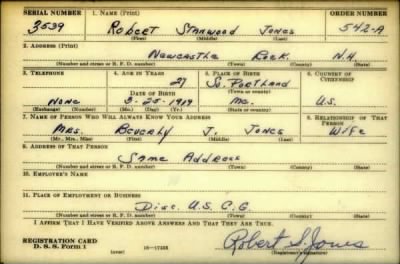 SERIAL NUMBER 1. NAME (Print) ORDER NUMBER
3539 ROBERT STANWOOD JONES 542-A
(First) (Middle) (Last)
2. ADDRESS (Print)
NEWCASTLE ROCK. N.H.
(Number and street or R. F. D. number) (Town) (County) (State)
3. TELEPHONE 4. AGE IN YEARS 5. PLACE OF BIRTH 6. COUNTRY OF CITIZENSHIP
27 So. PORTLAND
DATE OF BIRTH (Town or county)
NONE 3-25-1919 ME. U.S.
(Exchange) (Number) (Mo.) (Day) (Yr.) (State or country)
7. NAME OF PERSON WHO WILL ALWAYS KNOW YOUR ADDRESS 8. RELATIONSHIP OF THAT PERSON
MRS. BEVERLY J. JONES WIFE
(Mr., Mrs., Miss) (First) (Middle) (Last)
9. ADDRESS OF THAT PERSON
SAME ADDRESS
(Number and street or R. F. D. number) (Town) (County) (State)
10. EMPLOYER'S NAME
11. PLACE OF EMPLOYMENT OR BUSINESS
DISC. U.S.C.G.
(Number and street or R. F. D. number) (Town) (County) (State)
I AFFIRM THAT I HAVE VERIFIED ABOVE ANSWERS AND THAT THEY ARE TRUE.
REGISTRATION CARD
D. S. S. Form 1 (over) Robert S. Jones
(Registrant's signature)